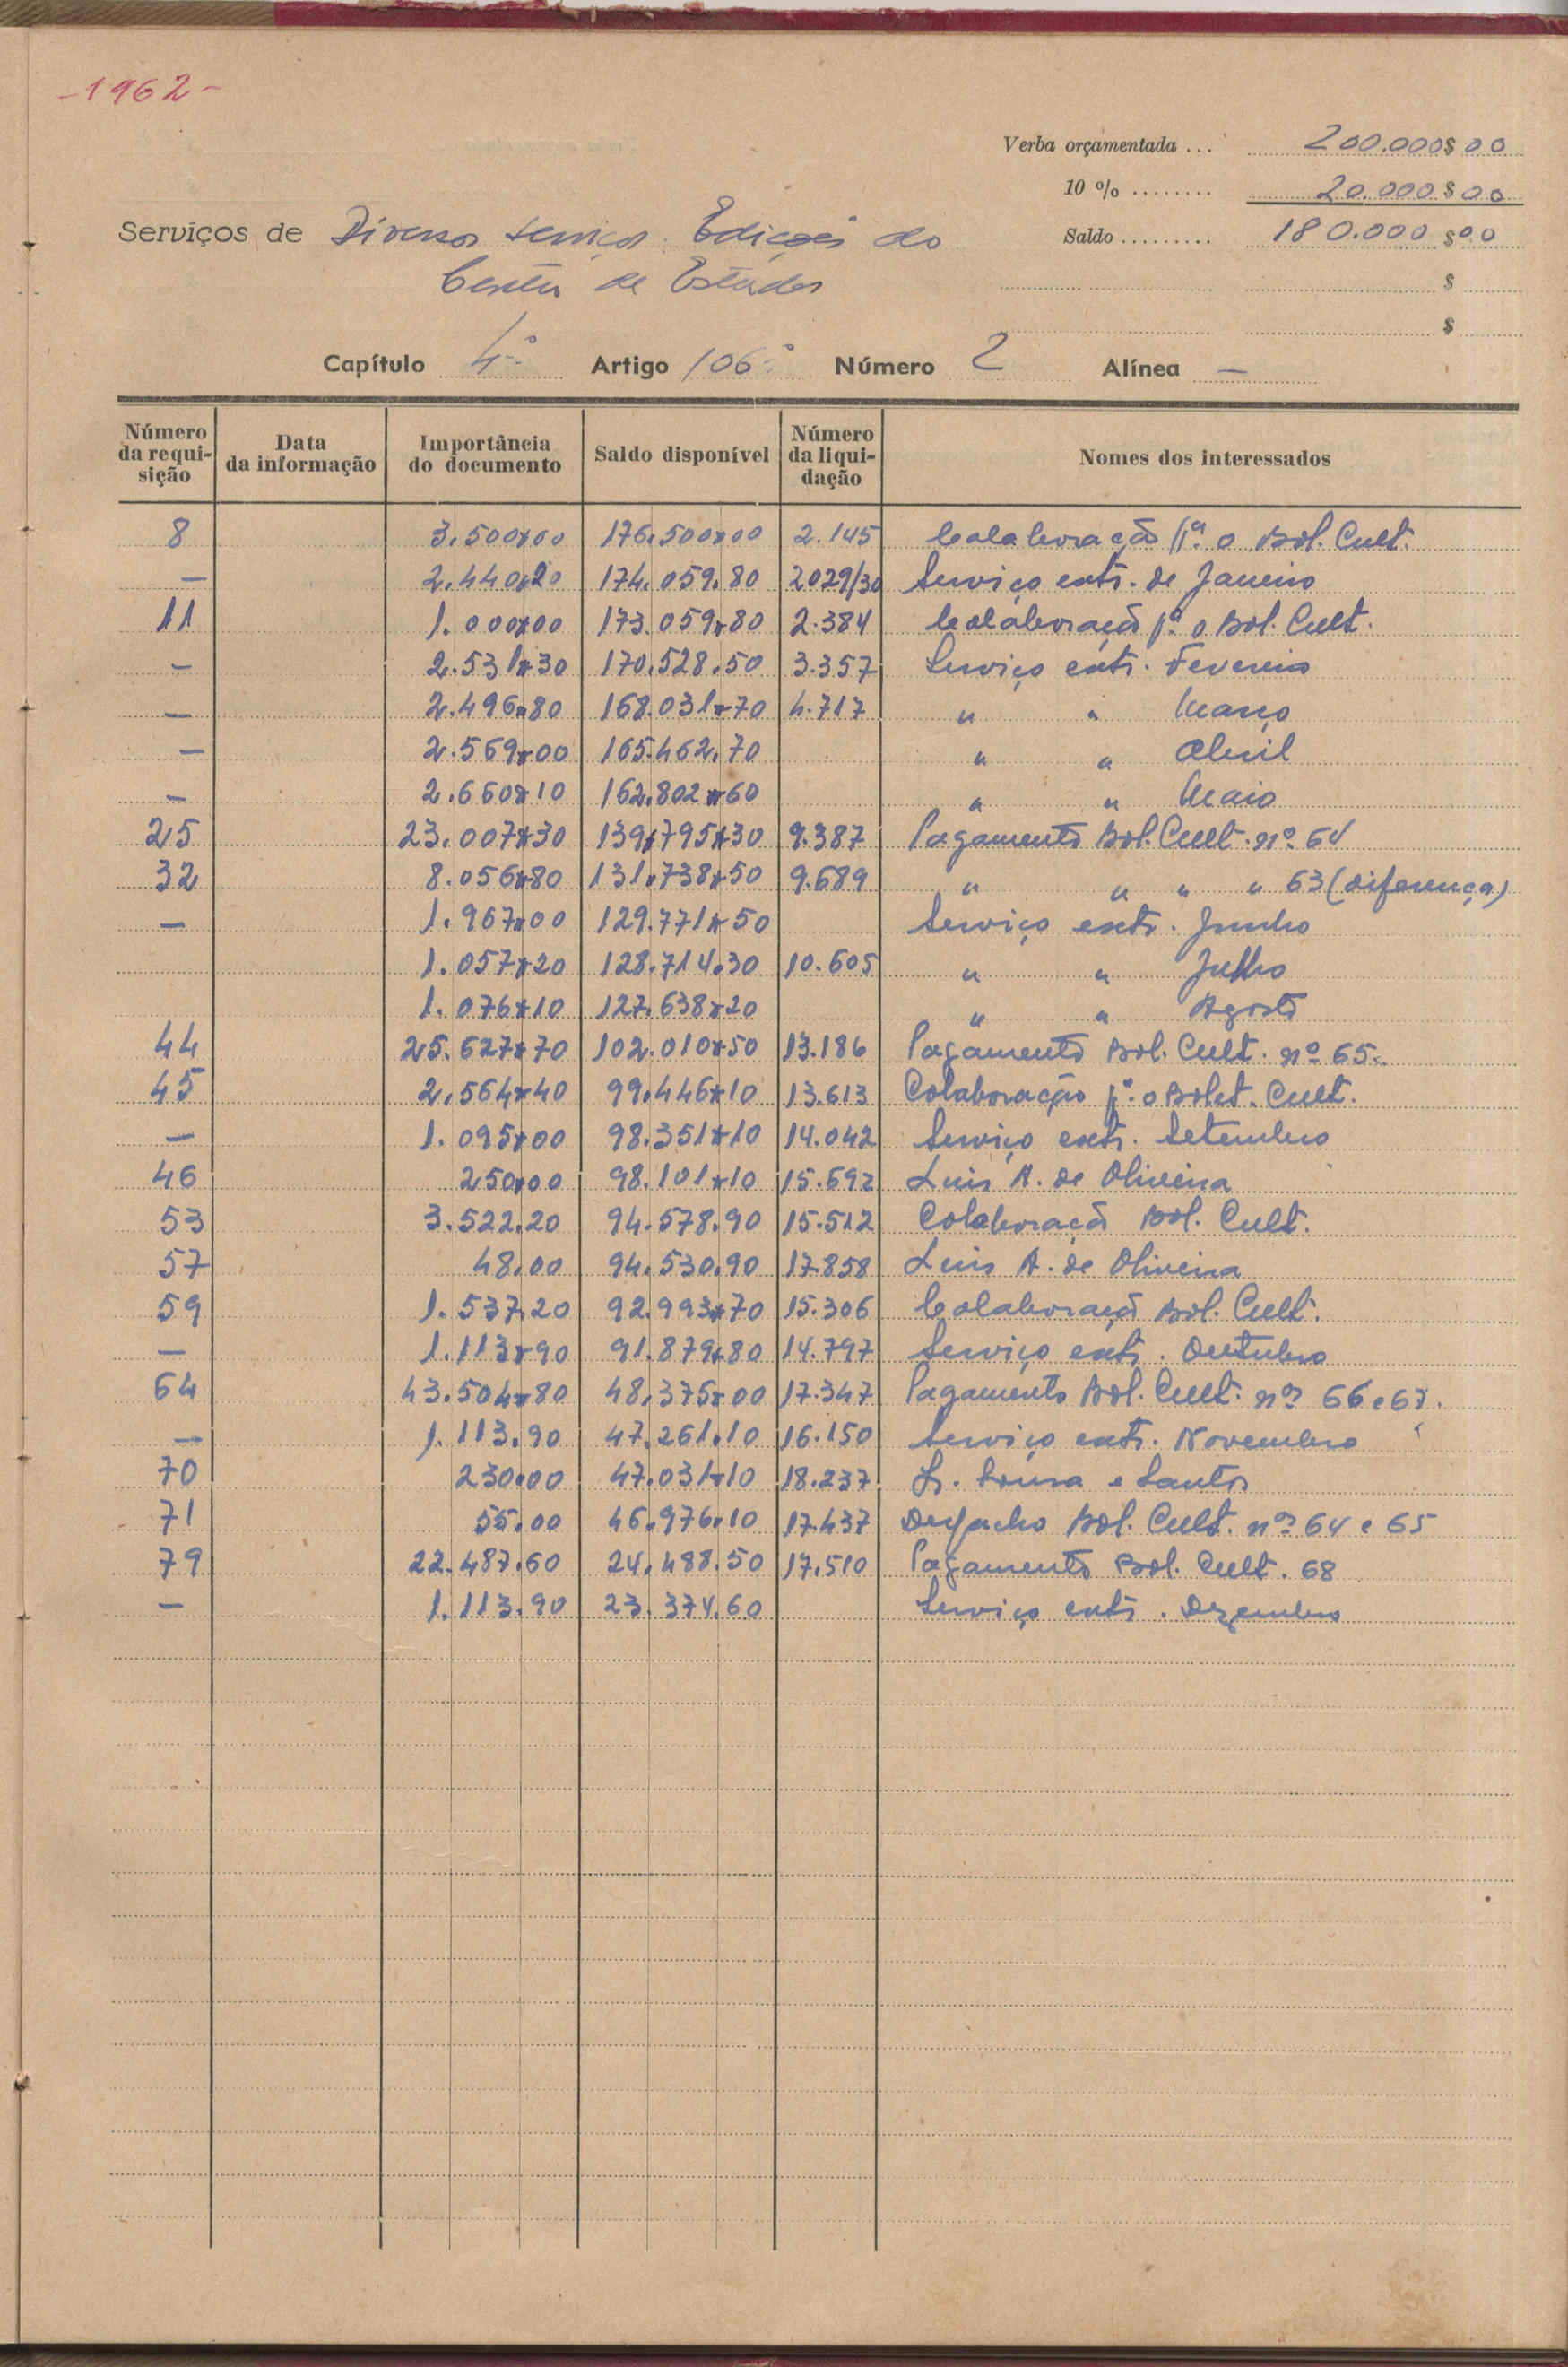 -1962-
Verba orçamentada ... 200.000$00
10 % ........ 20.000$00
Serviços de Diversos serviços. Edições do Saldo ......... 180.000$00
Centro de Estudos $
$
Capítulo 4.º Artigo 106.º Número 2 Alínea —
Número da requisição Data da informação Importância do documento Saldo disponível Número da liquidação Nomes dos interessados
8 3.500$00 176.500$00 2.145 Colaboração p.ª o Bol. Cult.
— 2.440.20 174.059.80 2029/30 Serviço extr. de Janeiro
11 1.000$00 173.059$80 2.384 Colaboração p.ª o Bol. Cult.
— 2.531$30 170.528.50 3.357 Serviço extr. Fevereiro
— 2.496$80 168.031$70 4.717 " " Março
— 2.569$00 165.462.70 " " Abril
— 2.660$10 162.802$60 " " Maio
25 23.007$30 139.795$30 9.387 Pagamento Bol. Cult. nº 64
32 8.056$80 131.738$50 9.689 " " " " 63 (diferença)
— 1.967$00 129.771$50 Serviço extr. Junho
1.057$20 128.714.30 10.605 " " Julho
1.076$10 127.638$20 " " Agosto
44 25.627$70 102.010$50 13.186 Pagamento Bol. Cult. nº 65.
45 2.564$40 99.446$10 13.613 Colaboração p.ª o Bolet. Cult.
— 1.095$00 98.351$10 14.042 Serviço extr. Setembro
46 250$00 98.101$10 15.692 Luis A. de Oliveira
53 3.522.20 94.578.90 15.512 Colaboração Bol. Cult.
57 48.00 94.530.90 17.858 Luis A. de Oliveira
59 1.537.20 92.993$70 15.306 Colaboração Bol. Cult.
— 1.113$90 91.879$80 14.797 Serviço extr. Outubro
64 43.504$80 48.375$00 17.347 Pagamento Bol. Cult. nos 66 e 67.
— 1.113.90 47.261.10 16.150 Serviço extr. Novembro
70 230.00 47.031$10 18.237 Sousa e Santos
71 55.00 46.976.10 17.437 Despacho Bol. Cult. nos 64 e 65
79 22.487.60 24.488.50 17.510 Pagamento Bol. Cult. 68
— 1.113.90 23.374.60 Serviço extr. Dezembro